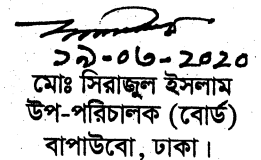 ১৯-০৬-২০২০
মোঃ সিরাজুল ইসলাম
উপ-পরিচালক (বোর্ড)
বাপাউবো, ঢাকা।